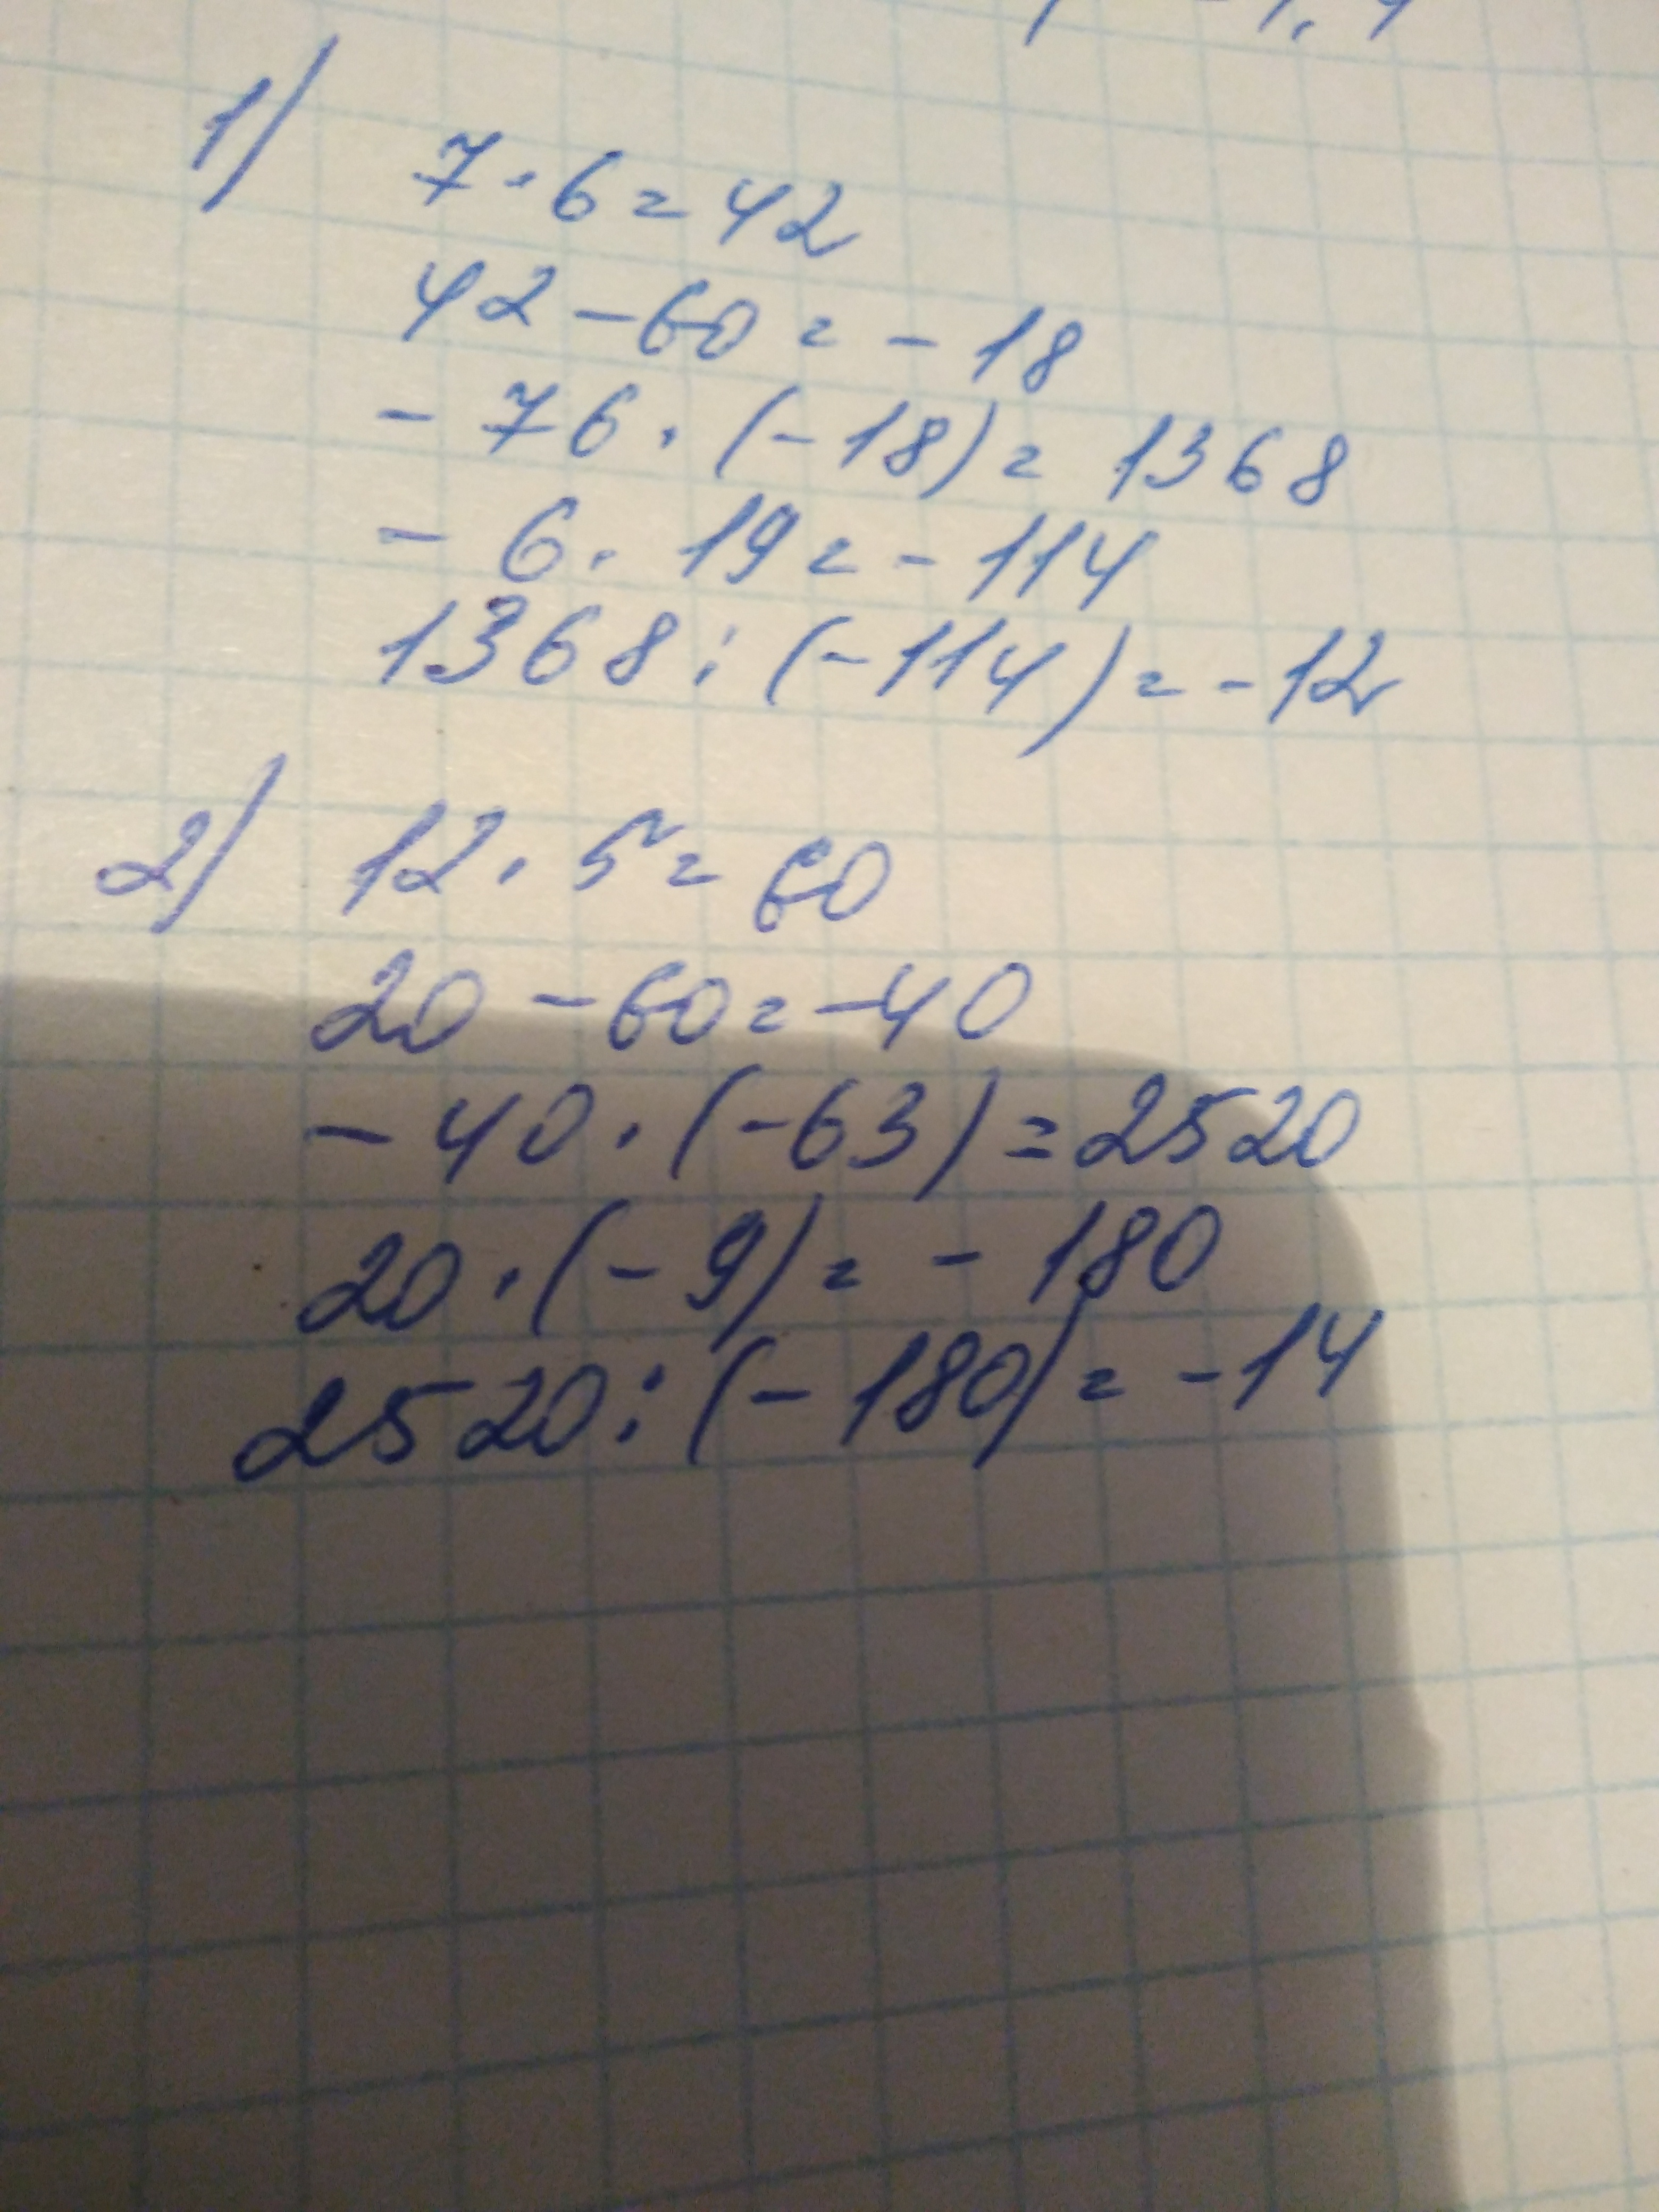 1) 7·6=42
42-60=-18
-76·(-18)=1368
-6·19=-114
1368:(-114)=-12
2) 12·5=60
20-60=-40
-40·(-63)=2520
20·(-9)=-180
2520:(-180)=-14